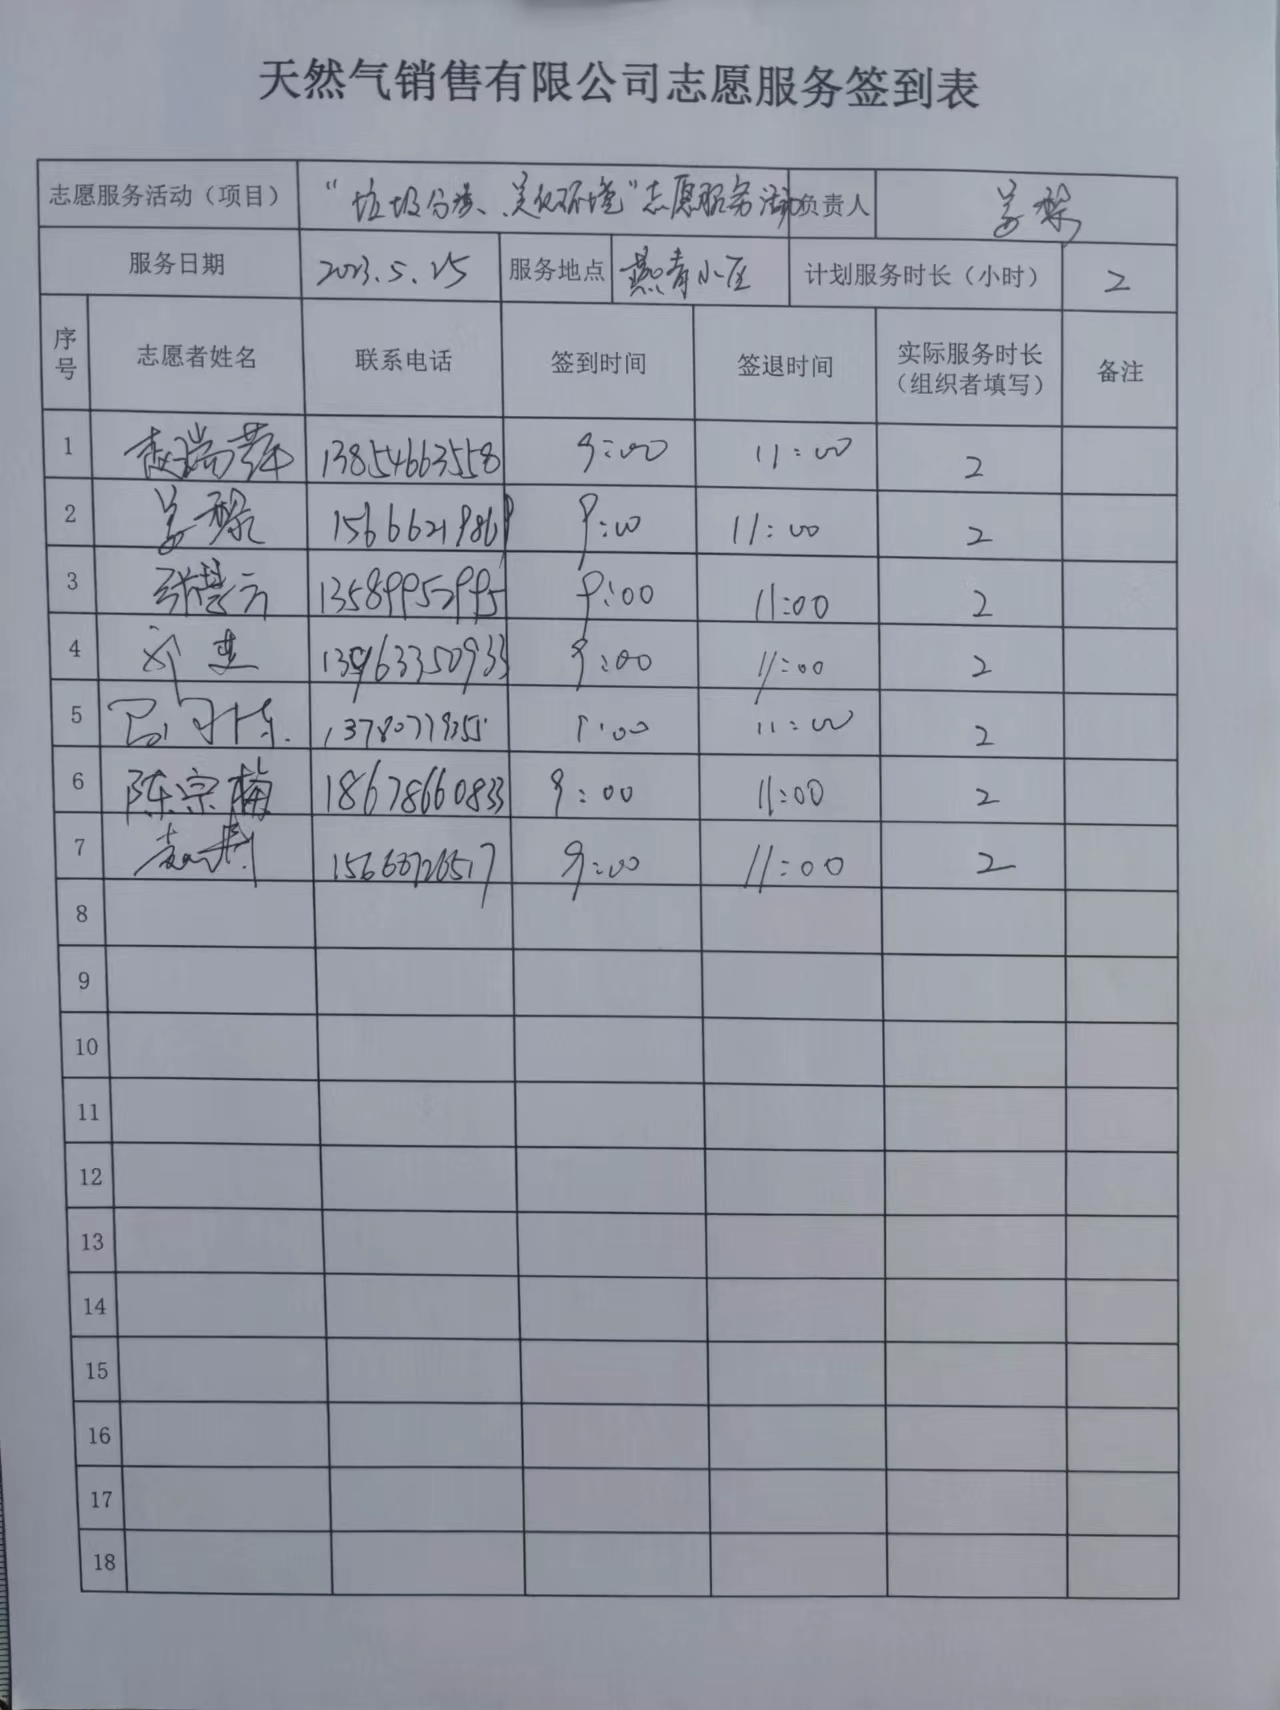 天然气销售有限公司志愿服务签到表
志愿服务活动（项目） “垃圾分类、美化环境”志愿服务活动 负责人 姜黎
服务日期 2023.5.25 服务地点 燕青小区 计划服务时长（小时） 2
序号 志愿者姓名 联系电话 签到时间 签退时间 实际服务时长（组织者填写） 备注
1 赵瑞萍 13854663558 9:00 11:00 2
2 姜黎 15666219869 9:00 11:00 2
3 张慧云 13589952995 9:00 11:00 2
4 13963350933 9:00 11:00 2
5 9:00 11:00 2
6 陈宗楠 18678660833 9:00 11:00 2
7 9:00 11:00 2
8
9
10
11
12
13
14
15
16
17
18